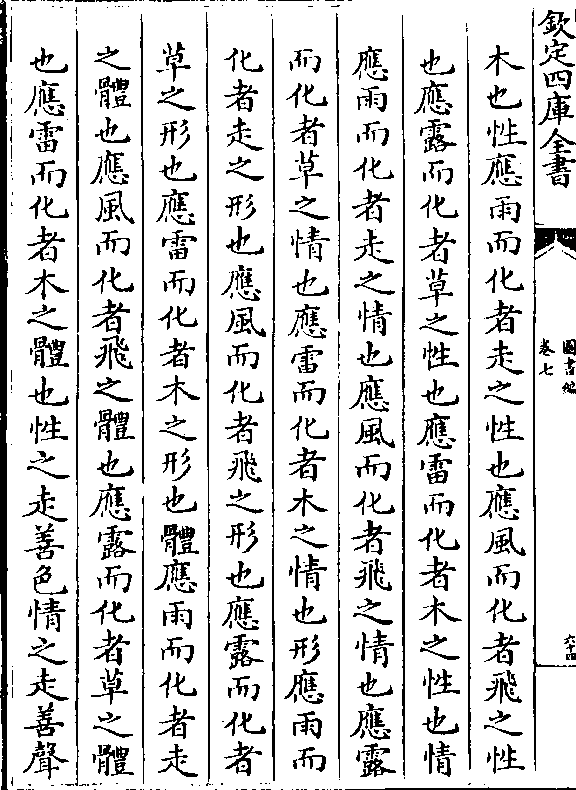 欽定四庫全書
圖書編
卷七
六十四
木也性應雨而化者走之性也應風而化者飛之性
也應露而化者草之性也應雷而化者木之性也情
應雨而化者走之情也應風而化者飛之情也應露
而化者草之情也應雷而化者木之情也形應雨而
化者走之形也應風而化者飛之形也應露而化者
草之形也應雷而化者木之形也體應雨而化者走
之體也應風而化者飛之體也應露而化者草之體
也應雷而化者木之體也性之走善色情之走善聲